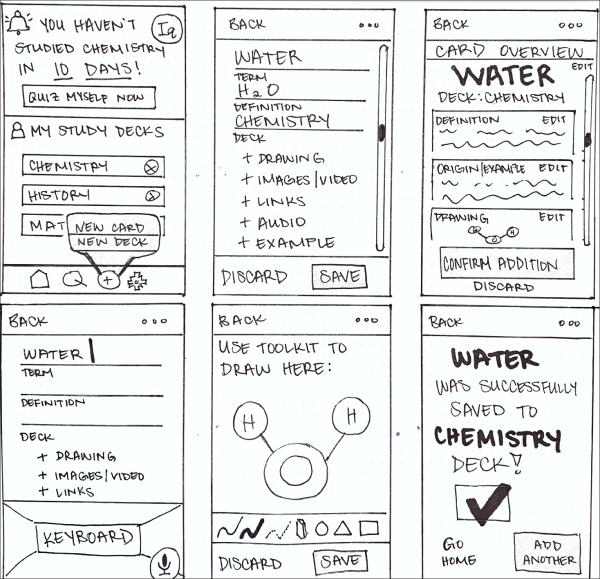 YOU HAVEN'T
STUDIED CHEMISTRY
IN 10 DAYS!
QUIZ MYSELF NOW
MY STUDY DECKS
CHEMISTRY
HISTORY
MAT
NEW CARD
NEW DECK
+
BACK
WATER
TERM
H2O
DEFINITION
CHEMISTRY
DECK
+ DRAWING
+ IMAGES/VIDEO
+ LINKS
+ AUDIO
+ EXAMPLE
DISCARD SAVE
BACK
CARD OVERVIEW
EDIT
WATER
DECK: CHEMISTRY
DEFINITION EDIT
ORIGIN/EXAMPLE EDIT
DRAWING EDIT
CONFIRM ADDITION
DISCARD
BACK
WATER
TERM
DEFINITION
DECK
+ DRAWING
+ IMAGES/VIDEO
+ LINKS
KEYBOARD
BACK
USE TOOLKIT TO
DRAW HERE:
H H
DISCARD SAVE
BACK
WATER
WAS SUCCESSFULLY
SAVED TO
CHEMISTRY
DECK!
GO
HOME
ADD
ANOTHER